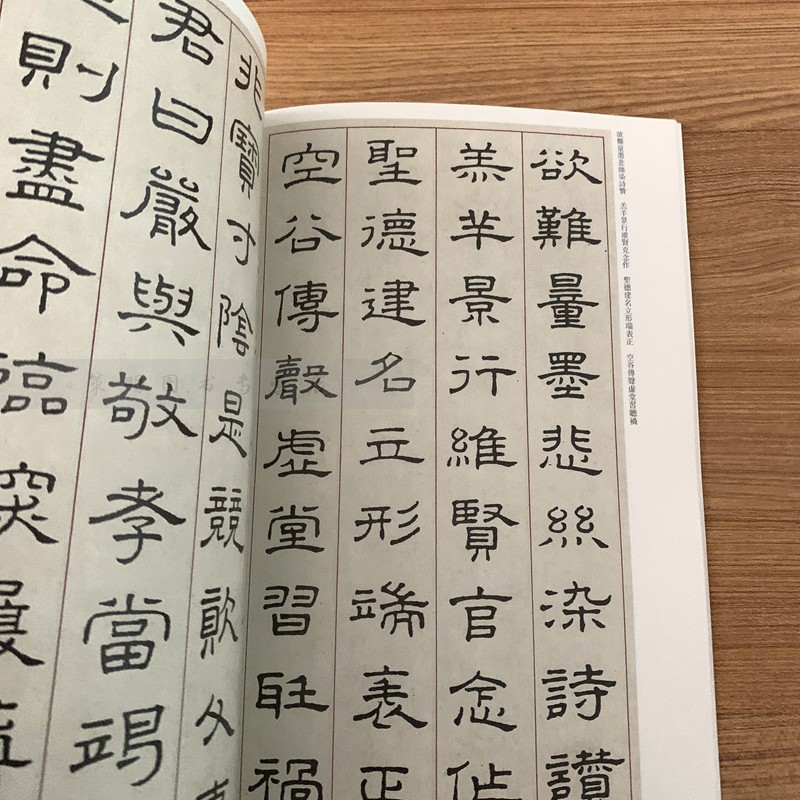 欲難量墨悲絲染詩贊 羔羊景行維賢克念作 聖德建名立形端表正 空谷傳聲虛堂習聽禍
欲難量墨悲絲染詩讚
羔羊景行維賢克念作
聖德建名立形端表正
空谷傳聲虛堂習聽禍
非寶寸陰是競資父事
君曰嚴與敬孝當竭
則盡命臨深履